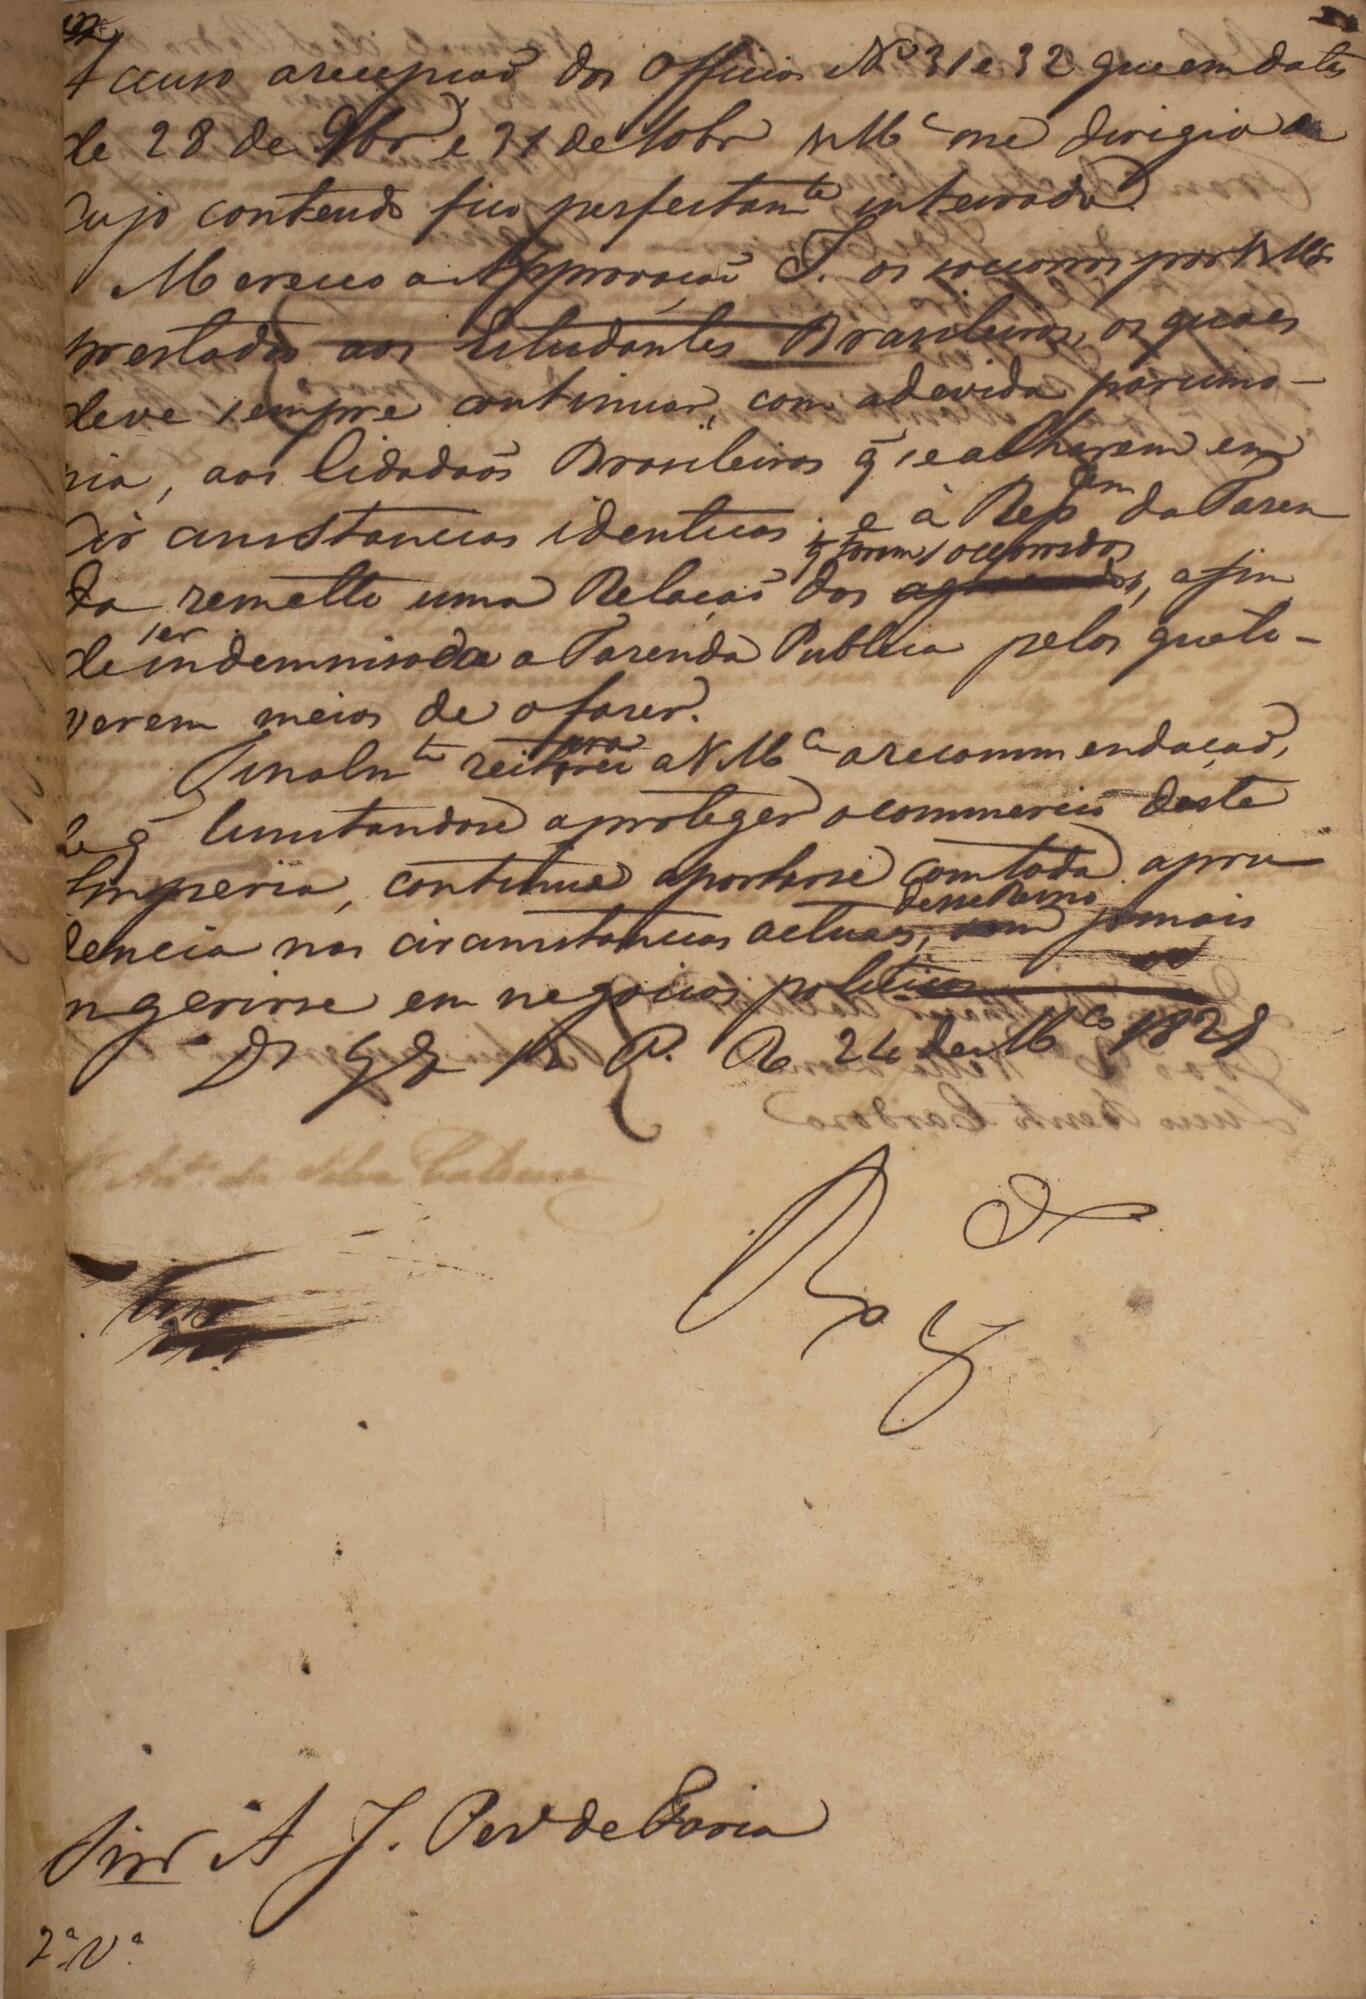 Accuso a recepçaõ dos Officios Nos 31 e 32 que em data
de 28 de 9br e 31 de 10br V Mce me dirigio a
cujo contendo fico perfeitamte inteirado.
Mereceo a Approvaçaõ I. os soccorros por V Mce
prestados aos Estudantes Brasileiros, os quaes
deve sempre continuar, com a devida parcimo-
nia, aos Cidadaõs Brasileiros q̃ se acharem em
Circunstancias identicas; e à Repam da Fazen
da remetto uma Relaçaõ dos q̃ forem soccorridos, afim
de ser indemnisada a Fazenda Publica pelos que ti-
verem meios de o fazer.
Finalmte reitero a V Mce a recommendaçaõ,
de q̃ limitandose a proteger o commercio deste
Imperio, continue a portarse com toda a pru
dencia nas circunstancias actuaes desse Reino, sem jamais
ingerirse em negocios politicos
Ds Gde V P. R 24 de Mço 1829
Snr A J. Perª de Faria
2ª Vª